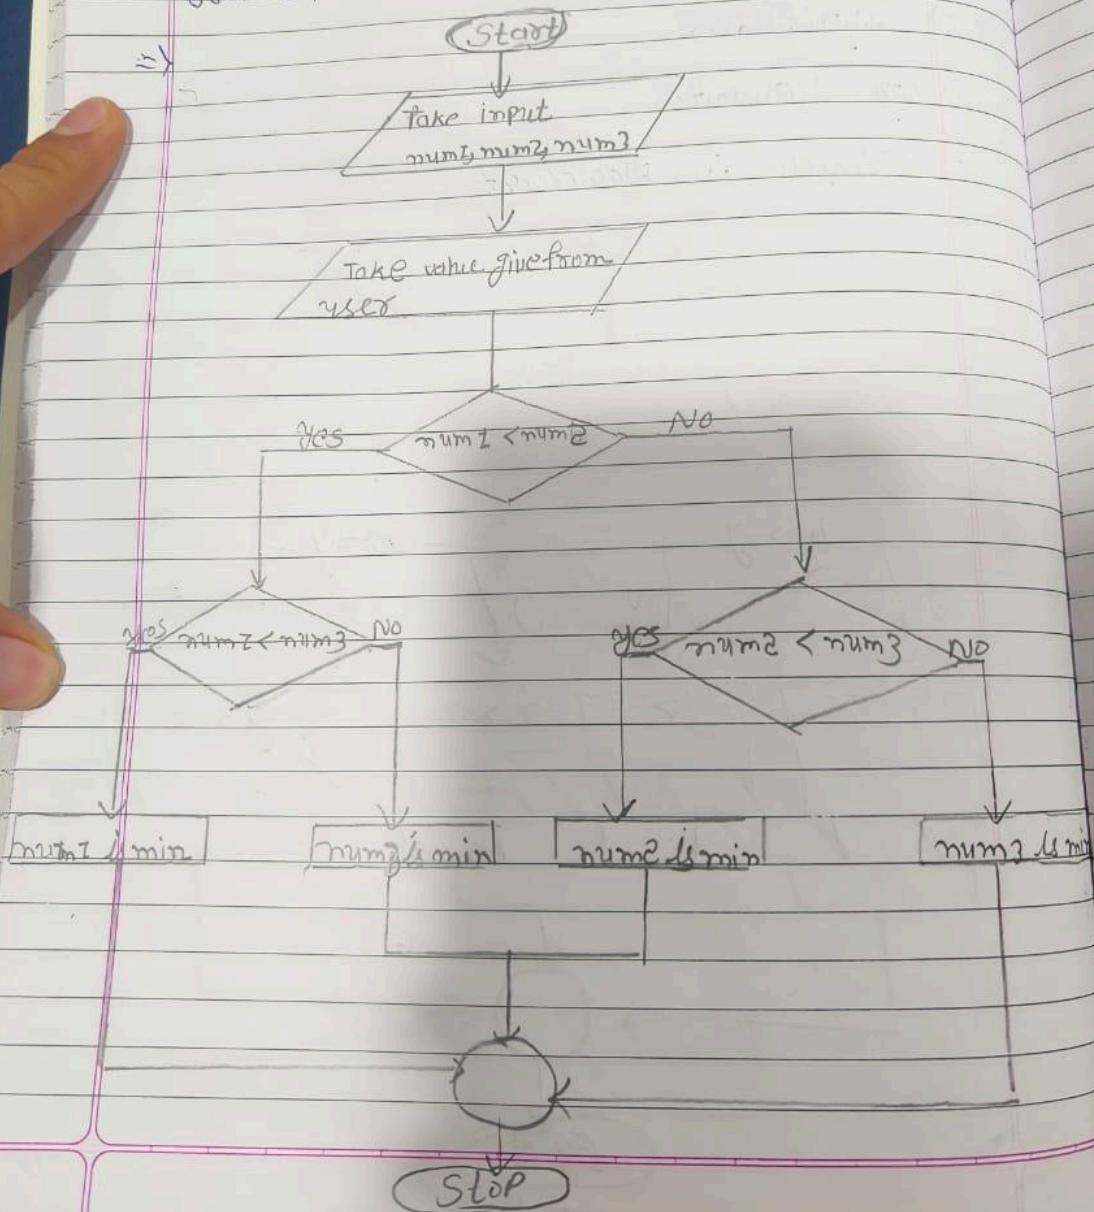 ii)
Start
Take input
num1, num2, num3
Take value give from
user
num1 < num2
Yes
No
Yes
num1 < num3
No
Yes
num2 < num3
No
num1 is min
num3 is min
num2 is min
num3 is min
Stop